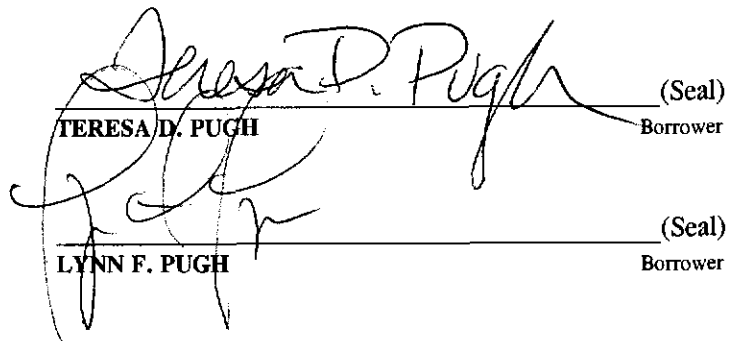 Teresa D. Pugh (Seal)
TERESA D. PUGH Borrower
(Seal)
LYNN F. PUGH Borrower